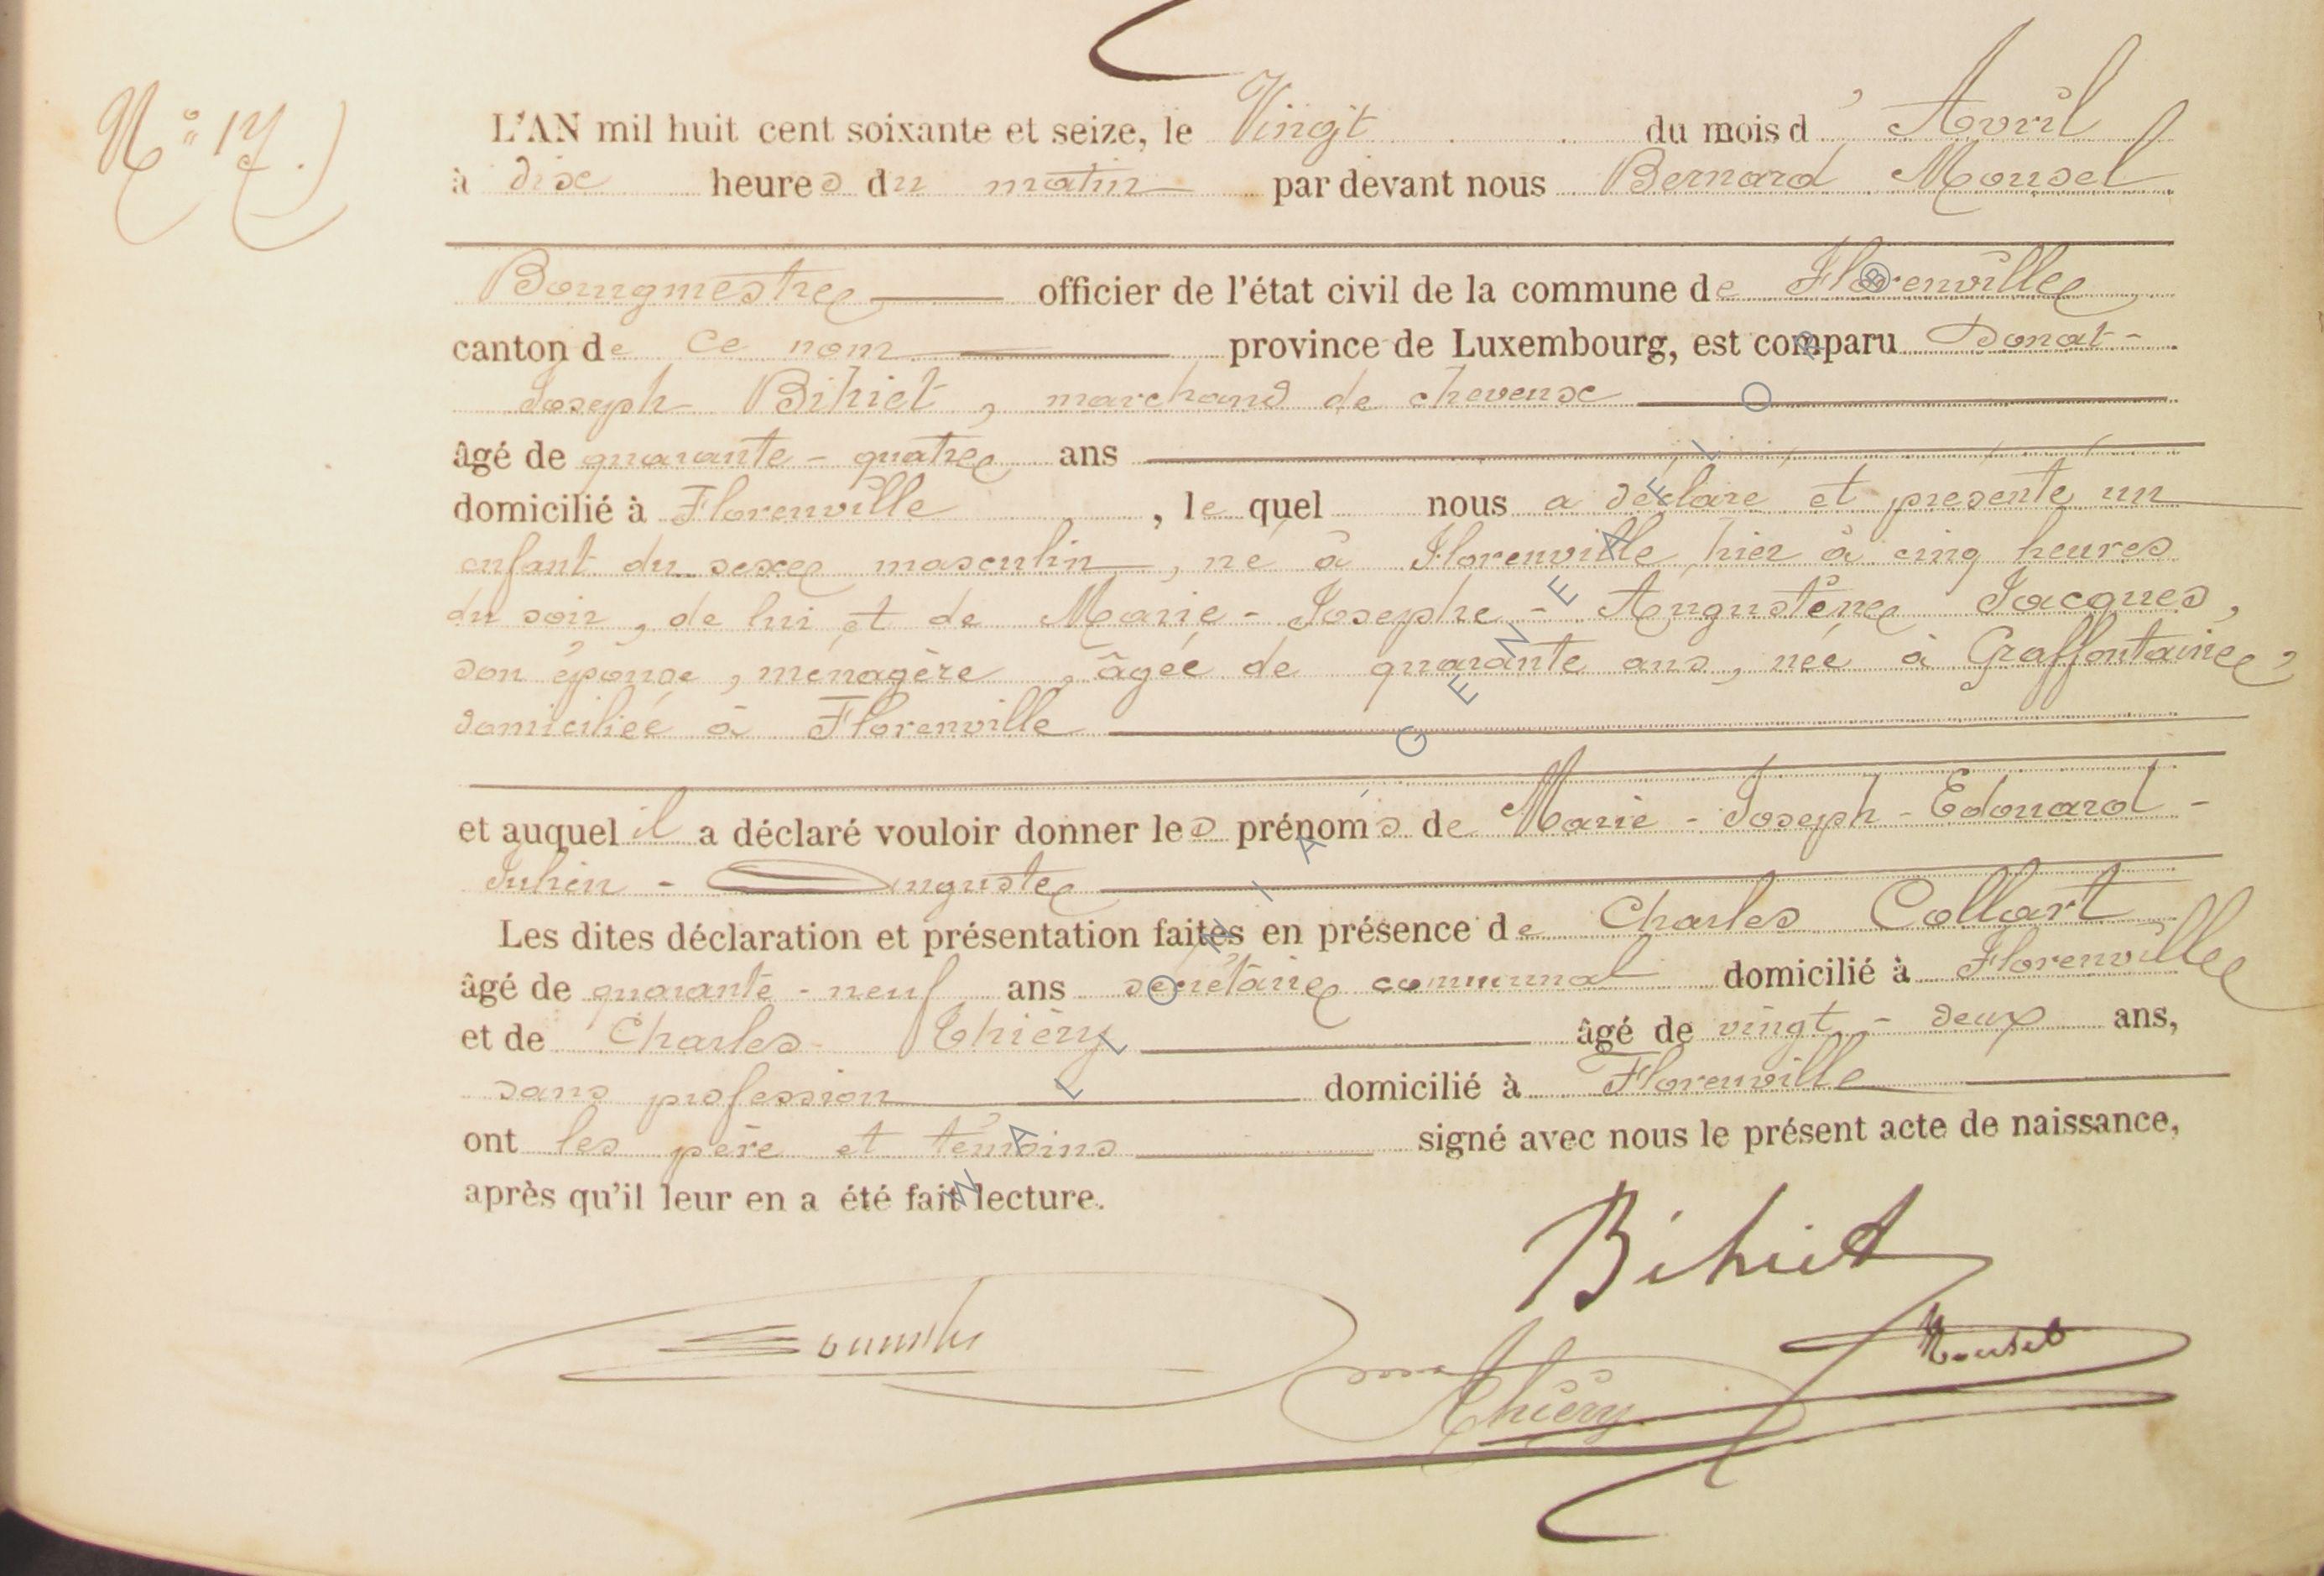 N° 17.)
L'AN mil huit cent soixante et seize, le Vingt du mois d'Avril
à dix heures du matin par devant nous Bernard Mousel
Bourgmestre officier de l'état civil de la commune de Florenville,
canton de ce nom province de Luxembourg, est comparu Donat-
Joseph Bihiet, marchand de cheveux
âgé de quarante-quatre ans
domicilié à Florenville, le quel nous a déclaré et présenté un
enfant du sexe masculin, né à Florenville, hier à cinq heures
du soir, de lui et de Marie-Josephe-Augustine Jacques,
son épouse, ménagère, âgée de quarante ans, née à Graffontaine,
domiciliée à Florenville
et auquel il a déclaré vouloir donner les prénoms de Marie-Joseph-Edouard-
Julien-Auguste
Les dites déclaration et présentation faites en présence de Charles Collart
âgé de quarante-neuf ans secrétaire communal domicilié à Florenville
et de Charles Thiéry âgé de vingt-deux ans,
sans profession domicilié à Florenville
ont les père et témoins signé avec nous le présent acte de naissance,
après qu'il leur en a été fait lecture.
Bihiet
Mousel
Thiéry
WALLONIA GENEALFLORB